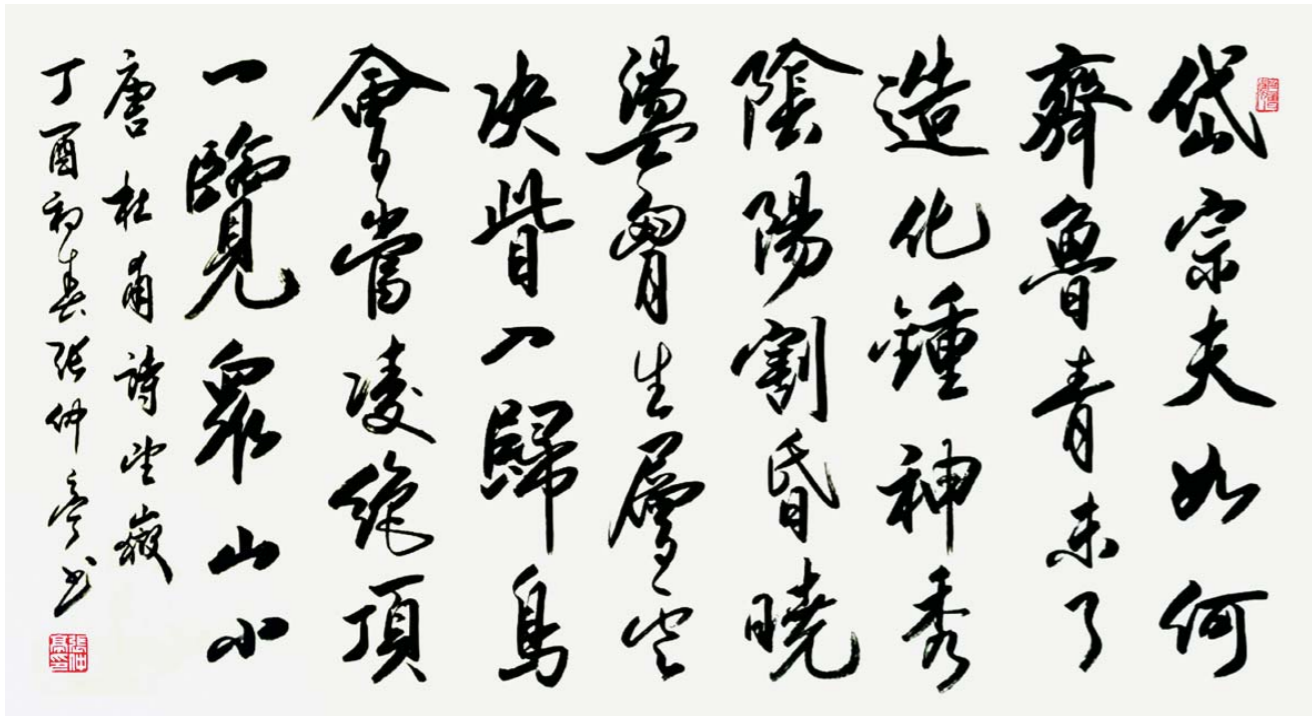 岱宗夫如何
齊魯青未了
造化鍾神秀
陰陽割昏曉
盪胷生層雲
决眥入歸鳥
會當凌絶頂
一覽眾山小
唐杜甫詩望嶽
丁酉初春張仲亭書
張仲亭印